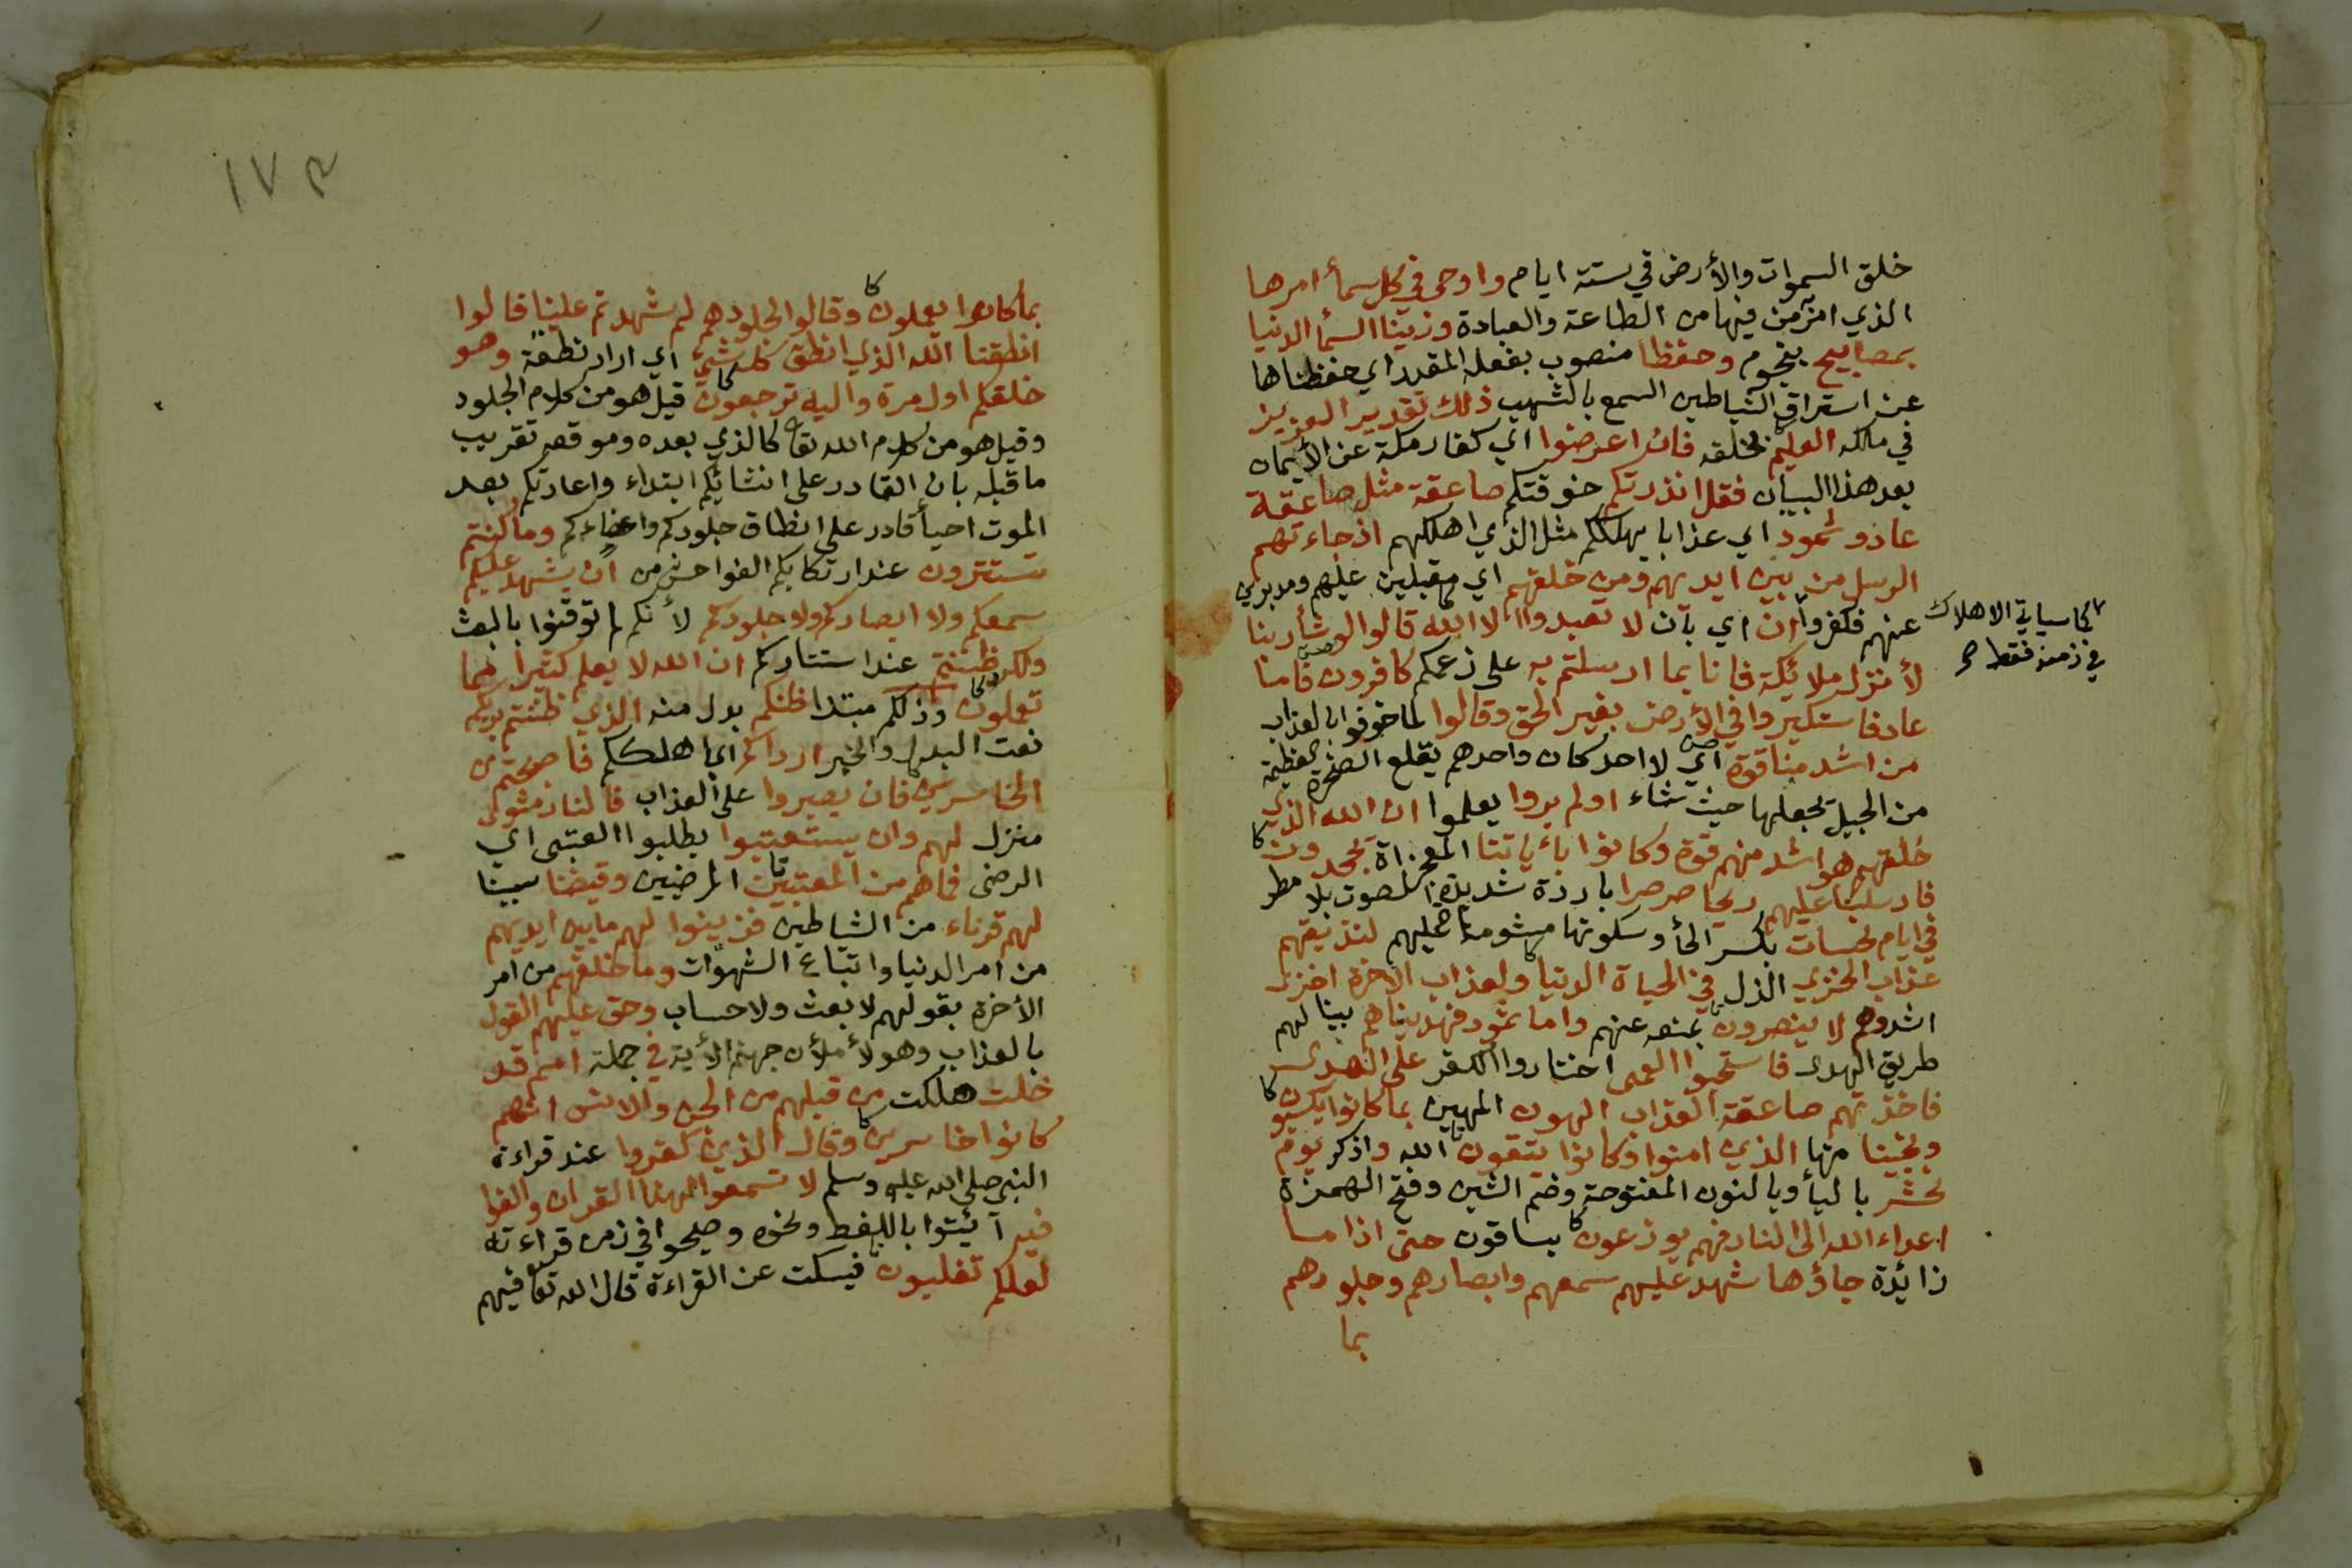 خلق السموات والأرض في ستة ايام واوحى في كل سمأ امرها
الذي امر من فيها من الطاعة والعبادة وزينا السمأ الدنيا
بمصابيح بنجوم وحفظا منصوب بفعله المقدر اي حفظناها
عن استراق الشياطين السمع بالشهب ذلك تقدير العزيز
في ملكه العليم بخلقه فان اعرضوا اي كفار مكة عن الايمان
بعد هذا البيان فقل انذرتكم خوفتكم صاعقة مثل صاعقة
عاد وثمود اي عذابا يهلككم مثل الذي اهلكهم اذ جاءتهم
الرسل من بين ايديهم ومن خلفهم اي مقبلين عليهم ومدبرين
عنهم فكفروا ان اي بان لا تعبدوا الا الله قالوا لو شأ ربنا
كما سياتي الاهلاك
في زمنه فقط صح
لأنزل ملائكة فانا بما ارسلتم به على زعمكم كافرون فاما
عاد فاستكبروا في الأرض بغير الحق وقالوا لما خوفوا بالعذاب
من اشد منا قوة اي لا احد كان واحدهم يقلع الصخرة العظيمة
من الجبل يجعلها حيث شاء اولم يروا يعلموا ان الله الذي
خلقهم هو اشد منهم قوة وكانوا بأياتنا المعجزاة يجحدون
فارسلنا عليهم ريحا صرصرا باردة شديدة الصوت بلا مطر
في ايام نحسات بكسر الحأ وسكونها مشومات عليهم لنذيقهم
عذاب الخزي الذل في الحياة الدنيا ولعذاب الاخرة اخزى
اشد وهم لا ينصرون بمنعه عنهم واما ثمود فهديناهم بينا لهم
طريق الهدى فاستحبوا العمى اختاروا الكفر على الهدى
فاخذتهم صاعقة العذاب الهون المهين بما كانوا يكسبون
ونجينا منها الذين امنوا وكانوا يتقون الله واذكر يوم
نحشر باليأ وبالنون المفتوحة وضم الشين وفتح الهمزة
اعداء الله الى النار فهم يوزعون يساقون حتى اذا ما
زائدة جاؤها شهد عليهم سمعهم وابصارهم وجلودهم
بما
١٧٣
بما كانوا يعملون وقالوا لجلودهم لم شهدتم علينا قالوا
انطقنا الله الذي انطق كل شيئ اي اراد نطقه وهو
خلقكم اول مرة واليه ترجعون قيل هو من كلام الجلود
وقيل هو من كلام الله تعا كالذي بعده وموقعه تقريب
ما قبله بان القادر على انشائكم ابتداء واعادتكم بعد
الموت احيأ قادر على انطاق جلودكم واعضاءكم وما كنتم
تستترون عند ارتكابكم الفواحش من ان يشهد عليكم
سمعكم ولا ابصاركم ولا جلودكم لأنكم لم توقنوا بالبعث
ولكن ظننتم عند استتاركم ان الله لا يعلم كثيرا مما
تعملون وذلكم مبتدا ظنكم بدل منه الذي ظننتم بربكم
نعت البدل والخبر ارداكم اي اهلككم فاصبحتم من
الخاسرين فان يصبروا على العذاب فالنار مثوى
منزل لهم وان يستعتبوا يطلبوا العتبى اي
الرضى فما هم من المعتبين المرضيين وقيضنا سببنا
لهم قرناء من الشياطين فزينوا لهم ما بين ايديهم
من امر الدنيا واتباع الشهوات وما خلفهم من امر
الأخرة بقولهم لا بعث ولا حساب وحق عليهم القول
بالعذاب وهو لأملأن جهنم الأية في جملة امم قد
خلت هلكت من قبلهم من الجن والانس انهم
كانوا خاسرين وقال الذين كفروا عند قراءة
النبي صلى الله عليه وسلم لا تسمعوا لهذا القران والغوا
فيه آئيتوا باللغط ونحوه وصيحوا في زمن قراءته
لعلكم تغلبون فيسكت عن القراءة قال الله تعا فيهم